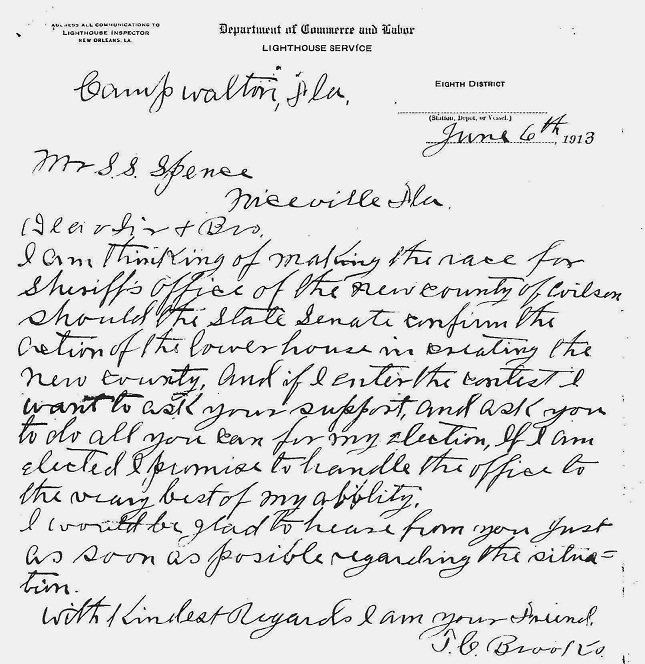 ADDRESS ALL COMMUNICATIONS TO
LIGHTHOUSE INSPECTOR
NEW ORLEANS, LA.
Department of Commerce and Labor
LIGHTHOUSE SERVICE
EIGHTH DISTRICT
Camp walton, Fla.
(Station, Depot, or Vessel.)
June 6th, 1913
Mr S. S. Spence
Niceville Fla.
Dear Sir & Bro.
I am thinking of making the race for
Sheriff's office of the new county of Wilson
should the State Senate confirm the
action of the lower house in creating the
new county, And if I enter the contest I
want to ask your support, and ask you
to do all you can for my election, If I am
elected I promise to handle the office to
the veary best of my abblity.
I would be glad to heare from you just
as soon as posible regarding the situa=
tion.
with Kindest Regards I am your Friend.
T. C. Brooks.